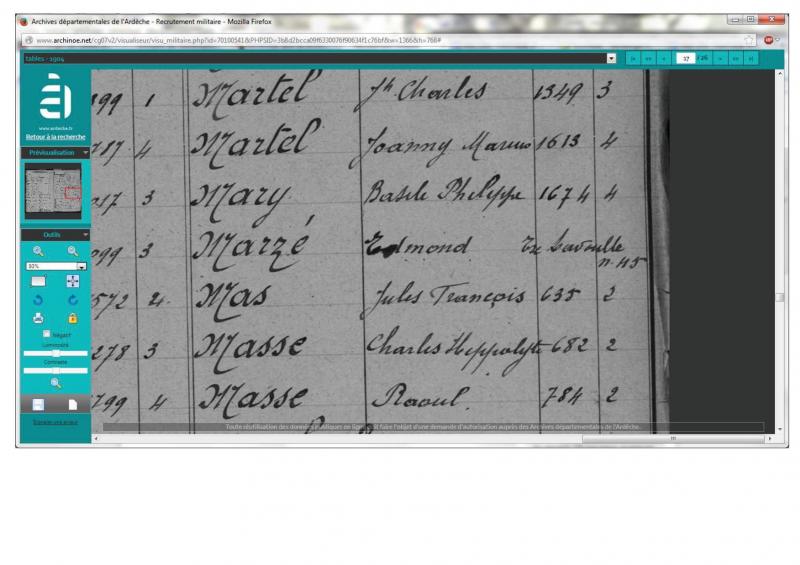 Archives départementales de l'Ardèche - Recrutement militaire - Mozilla Firefox
www.archinoe.net/cg07v2/visualiseur/visu_militaire.php?id=70100541&PHPSID=3b8d2bcca09f6330076f90634f1c76bf&w=1366&h=768#
tables - 1904
17 / 26
www.ardeche.fr
Retour à la recherche
Prévisualisation
Outils
80%
Négatif
Luminosité
Contraste
199 1 Martel Jh Charles 1349 3
787 4 Martel Joanny Marius 1613 4
017 3 Mary Basile Philippe 1674 4
099 3 Marzé Edmond
n. 45
572 2 Mas Jules François 635 2
278 3 Masse Charles Hippolyte 682 2
799 4 Masse Raoul. 784 2
Toute réutilisation des données publiques en ligne doit faire l'objet d'une demande d'autorisation auprès des Archives départementales de l'Ardèche.